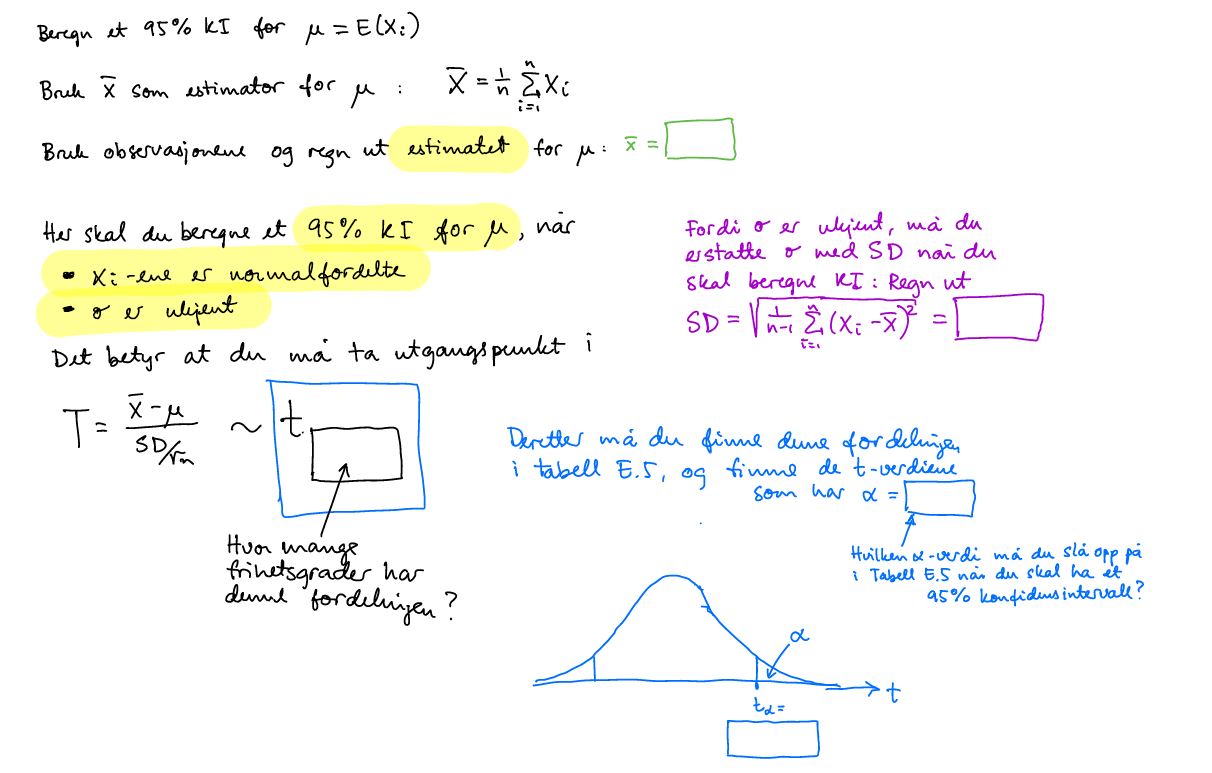 Beregn et 95% KI for μ = E(Xi)
Bruk X̄ som estimator for μ : X̄ = 1/n Σ(i=1 til n) Xi
Bruk observasjonene og regn ut estimatet for μ: x̄ =
Her skal du beregne et 95% KI for μ, når
- Xi-ene er normalfordelte
- σ er ukjent
Det betyr at du må ta utgangspunkt i
T = (X̄ - μ) / (SD/√n) ~ t
Hvor mange
frihetsgrader har
denne fordelingen?
Fordi σ er ukjent, må du
erstatte σ med SD når du
skal beregne KI : Regn ut
SD = √(1/(n-1) Σ(i=1 til n) (Xi - X̄)²) =
Deretter må du finne denne fordelingen
i tabell E.5, og finne de t-verdiene
som har α =
Hvilken α-verdi må du slå opp på
i Tabell E.5 når du skal ha et
95% konfidensintervall?
α
t
tα =